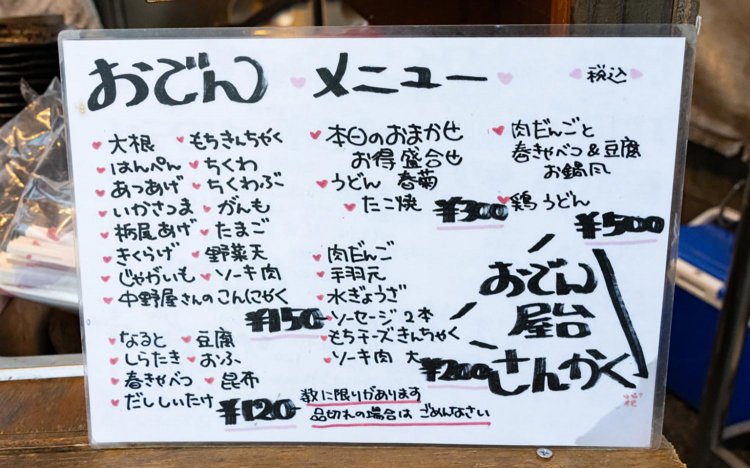 おでん メニュー 税込
大根 もちきんちゃく
はんぺん ちくわ
あつあげ ちくわぶ
いかさつま がんも
栃尾あげ たまご
きくらげ 野菜天
じゃがいも ソーキ肉
中野屋さんのこんにゃく
¥150
なると 豆腐
しらたき おふ
春きゃべつ 昆布
だししいたけ
¥120
本日のおまかせ
お得盛合せ
うどん 春菊
たこ焼
¥300
肉だんご
手羽元
水ぎょうざ
ソーセージ2本
もちチーズきんちゃく
ソーキ肉 大
¥200
肉だんごと
春きゃべつ&豆腐
お鍋風
鶏うどん
¥500
おでん
屋台
さんかく
数に限りがあります
品切れの場合は ごめんなさい